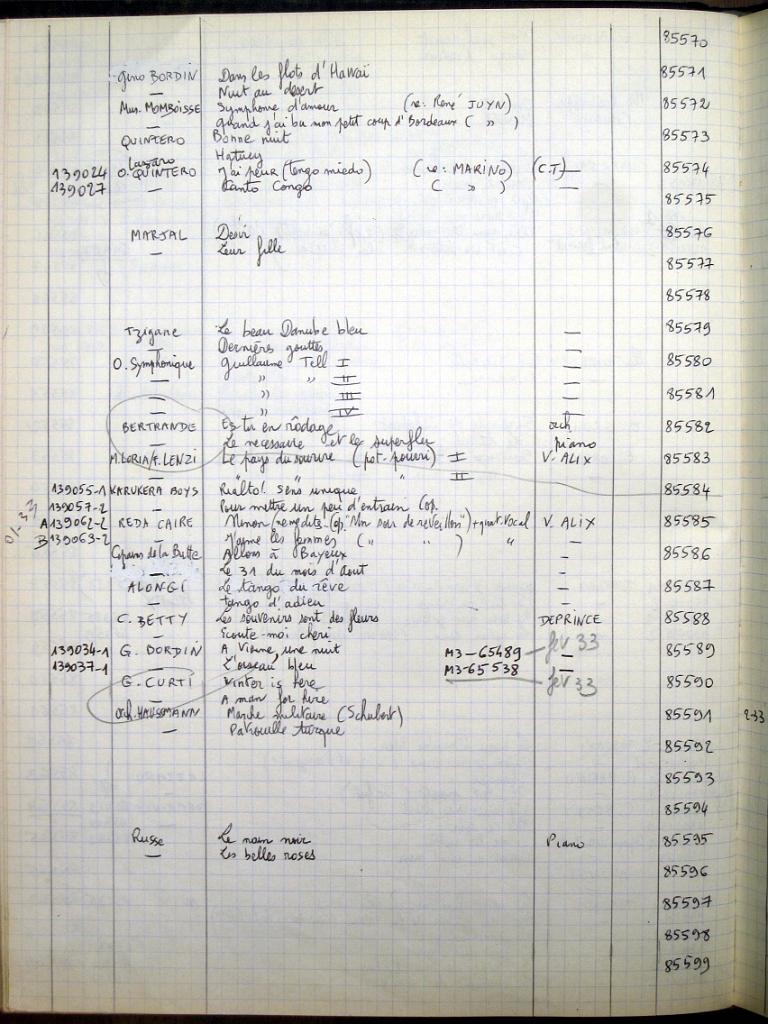 85570
gino BORDIN Dans les flots d'Hawaï 85571
— Nuit au desert
Mus. MOMBOISSE Symphonie d'amour (re: René JUYN) 85572
— Quand j'ai bu mon petit coup d'Bordeaux ( " )
QUINTERO Bonne nuit 85573
lazaro Hatuey
139024 O. QUINTERO J'ai peur (tengo miedo) (re: MARINO) (C.T) — 85574
139027 — Canto Congo ( " ) —
85575
MARJAL Désir 85576
— Leur fille
85577
85578
Tzigane Le beau Danube bleu — 85579
— Dernières gouttes —
O. Symphonique Guillaume Tell I — 85580
— " " II —
— " III — 85581
— " IV —
BERTRANDE Es tu en rôdage orch 85582
— Le necessaire et le superflu piano
M. LORIA/A. LENZI Le pays du sourire (pot-pourri) I V. ALIX 85583
— " " II
139055-1 KARUKERA BOYS Rialto! Sens unique 85584
139057-2 — Pour mettre un peu d'entrain (op.
01-33 A 139062-2 REDA CAIRE Ninon (op. "Un soir de réveillon") + quat. vocal V. ALIX 85585
B 139063-2 — J'aime les femmes ( " " ) " —
Copains de la Butte Allons à Bayeux - 85586
— Le 31 du mois d'Aout -
ALONGI Le tango du rêve - 85587
— Tango d'adieu -
C. BETTY Les souvenirs sont des fleurs DEPRINCE 85588
— Ecoute-moi cheri
139034-1 G. BORDIN A Vienne, une nuit M3-65489 — fev 33 85589
139037-1 — L'oiseau bleu M3-65538 —
G. CURTI Winter is here fev 33 85590
— A man for hire
Orch. HAUSSMANN Marche militaire (Schubert) 85591 2-33
— Patrouille turque
85592
85593
85594
Russe Le nain noir Piano 85595
— Les belles roses
85596
85597
85598
85599